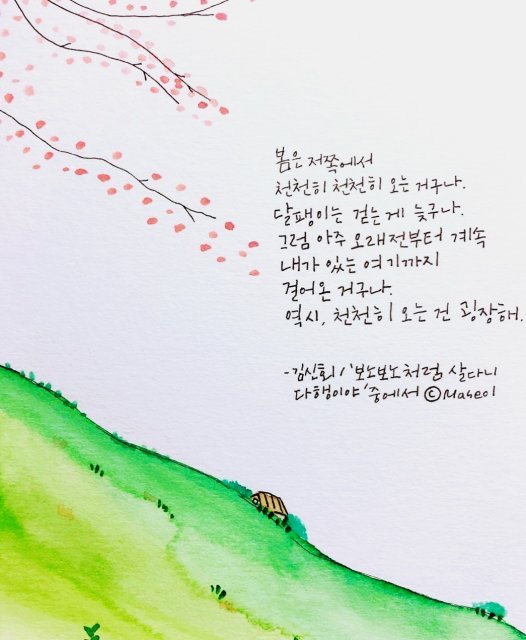 봄은 저쪽에서
천천히 천천히 오는 거구나.
달팽이는 걷는 게 늦구나.
그럼 아주 오래전부터 계속
내가 있는 여기까지
걸어온 거구나.
역시, 천천히 오는 건 굉장해.
-김신회 / '보노보노처럼 살다니
다행이야' 중에서 ©Maseol